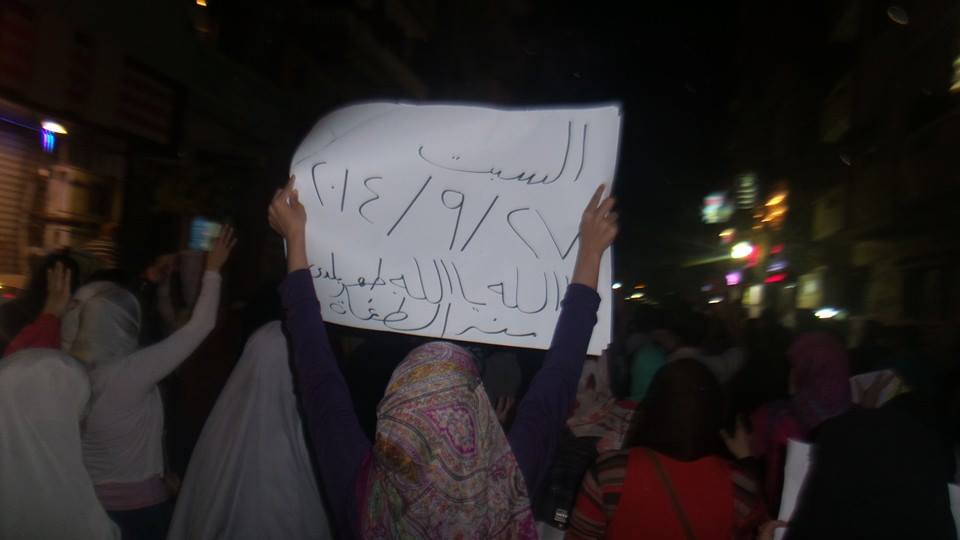 السبت
٢٧/٩/٢٠١٤
الله يا الله طهر بلدى
من الطغاة